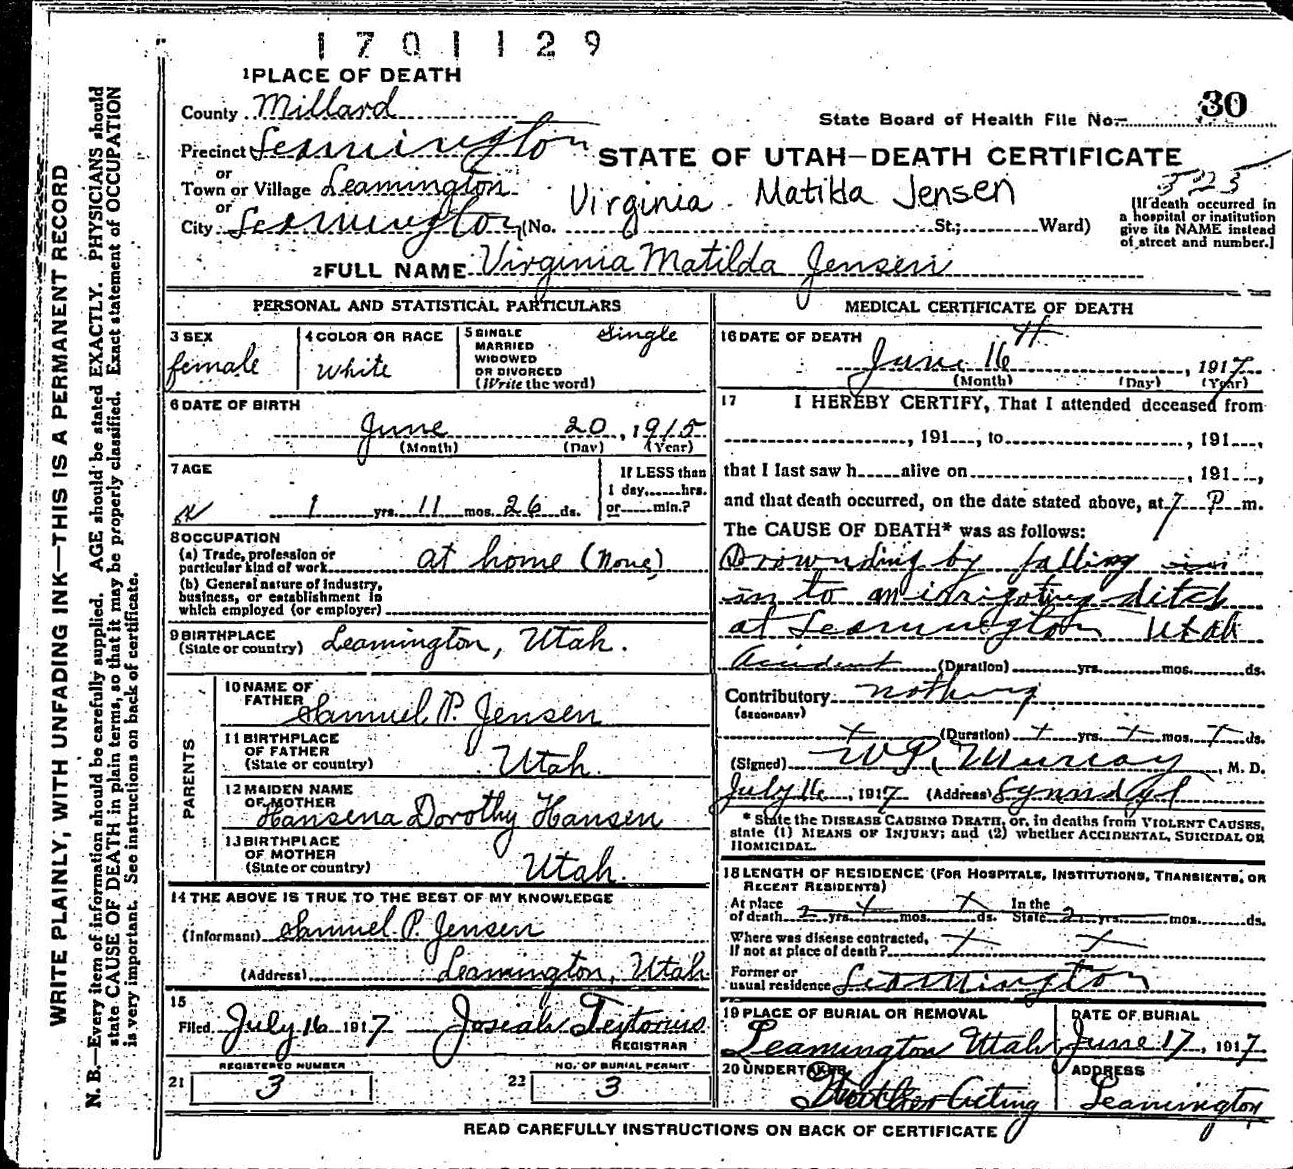 1701129
1 PLACE OF DEATH
County Millard
State Board of Health File No. 30
Precinct Leamington
STATE OF UTAH—DEATH CERTIFICATE
or
Town or Village Leamington
Virginia Matilda Jensen
325
or
City Leamington (No. St.; Ward)
[If death occurred in
a hospital or institution
give its NAME instead
of street and number.]
2 FULL NAME Virginia Matilda Jensen
PERSONAL AND STATISTICAL PARTICULARS
3 SEX
female
4 COLOR OR RACE
White
5 SINGLE
MARRIED
WIDOWED
OR DIVORCED
(Write the word)
single
6 DATE OF BIRTH
June 20, 1915
(Month) (Day) (Year)
7 AGE
1 yrs. 11 mos. 26 ds.
If LESS than
1 day, hrs.
or min.?
8 OCCUPATION
(a) Trade, profession or
particular kind of work at home (None)
(b) General nature of industry,
business, or establishment in
which employed (or employer)
9 BIRTHPLACE
(State or country) Leamington, Utah.
PARENTS
10 NAME OF
FATHER Samuel P. Jensen
11 BIRTHPLACE
OF FATHER
(State or country) Utah.
12 MAIDEN NAME
OF MOTHER
Hansena Dorothy Hansen
13 BIRTHPLACE
OF MOTHER
(State or country) Utah.
14 THE ABOVE IS TRUE TO THE BEST OF MY KNOWLEDGE
(Informant) Samuel P. Jensen
(Address) Leamington, Utah
15
Filed July 16 1917 Josiah
REGISTRAR
REGISTERED NUMBER
21 3
NO. OF BURIAL PERMIT
22 3
MEDICAL CERTIFICATE OF DEATH
16 DATE OF DEATH
June 16, 1917
(Month) (Day) (Year)
17 I HEREBY CERTIFY, That I attended deceased from
, 191 , to , 191 ,
that I last saw h alive on , 191 ,
and that death occurred, on the date stated above, at 7 P m.
The CAUSE OF DEATH* was as follows:
Drownding by falling in
in to an irrigating ditch
at Leamington Utah
Acident (Duration) yrs. mos. ds.
Contributory nothing
(SECONDARY)
+ (Duration) + yrs. + mos. + ds.
(Signed) W P. Murray, M. D.
July 16, 1917 (Address)
* State the DISEASE CAUSING DEATH, or, in deaths from VIOLENT CAUSES,
state (1) MEANS OF INJURY; and (2) whether ACCIDENTAL, SUICIDAL OR
HOMICIDAL.
18 LENGTH OF RESIDENCE (FOR HOSPITALS, INSTITUTIONS, TRANSIENTS, OR
RECENT RESIDENTS)
At place
of death 2 yrs. + mos. + ds.
In the
State 2 yrs. mos. ds.
Where was disease contracted,
If not at place of death? + +
Former or
usual residence Leamington
19 PLACE OF BURIAL OR REMOVAL
Leamington Utah
DATE OF BURIAL
June 17, 1917
20 UNDERTAKER
Acting
ADDRESS
Leamington
READ CAREFULLY INSTRUCTIONS ON BACK OF CERTIFICATE
WRITE PLAINLY, WITH UNFADING INK—THIS IS A PERMANENT RECORD
N. B.—Every item of information should be carefully supplied. AGE should be stated EXACTLY. PHYSICIANS should
state CAUSE OF DEATH in plain terms, so that it may be properly classified. Exact statement of OCCUPATION
is very important. See instructions on back of certificate.